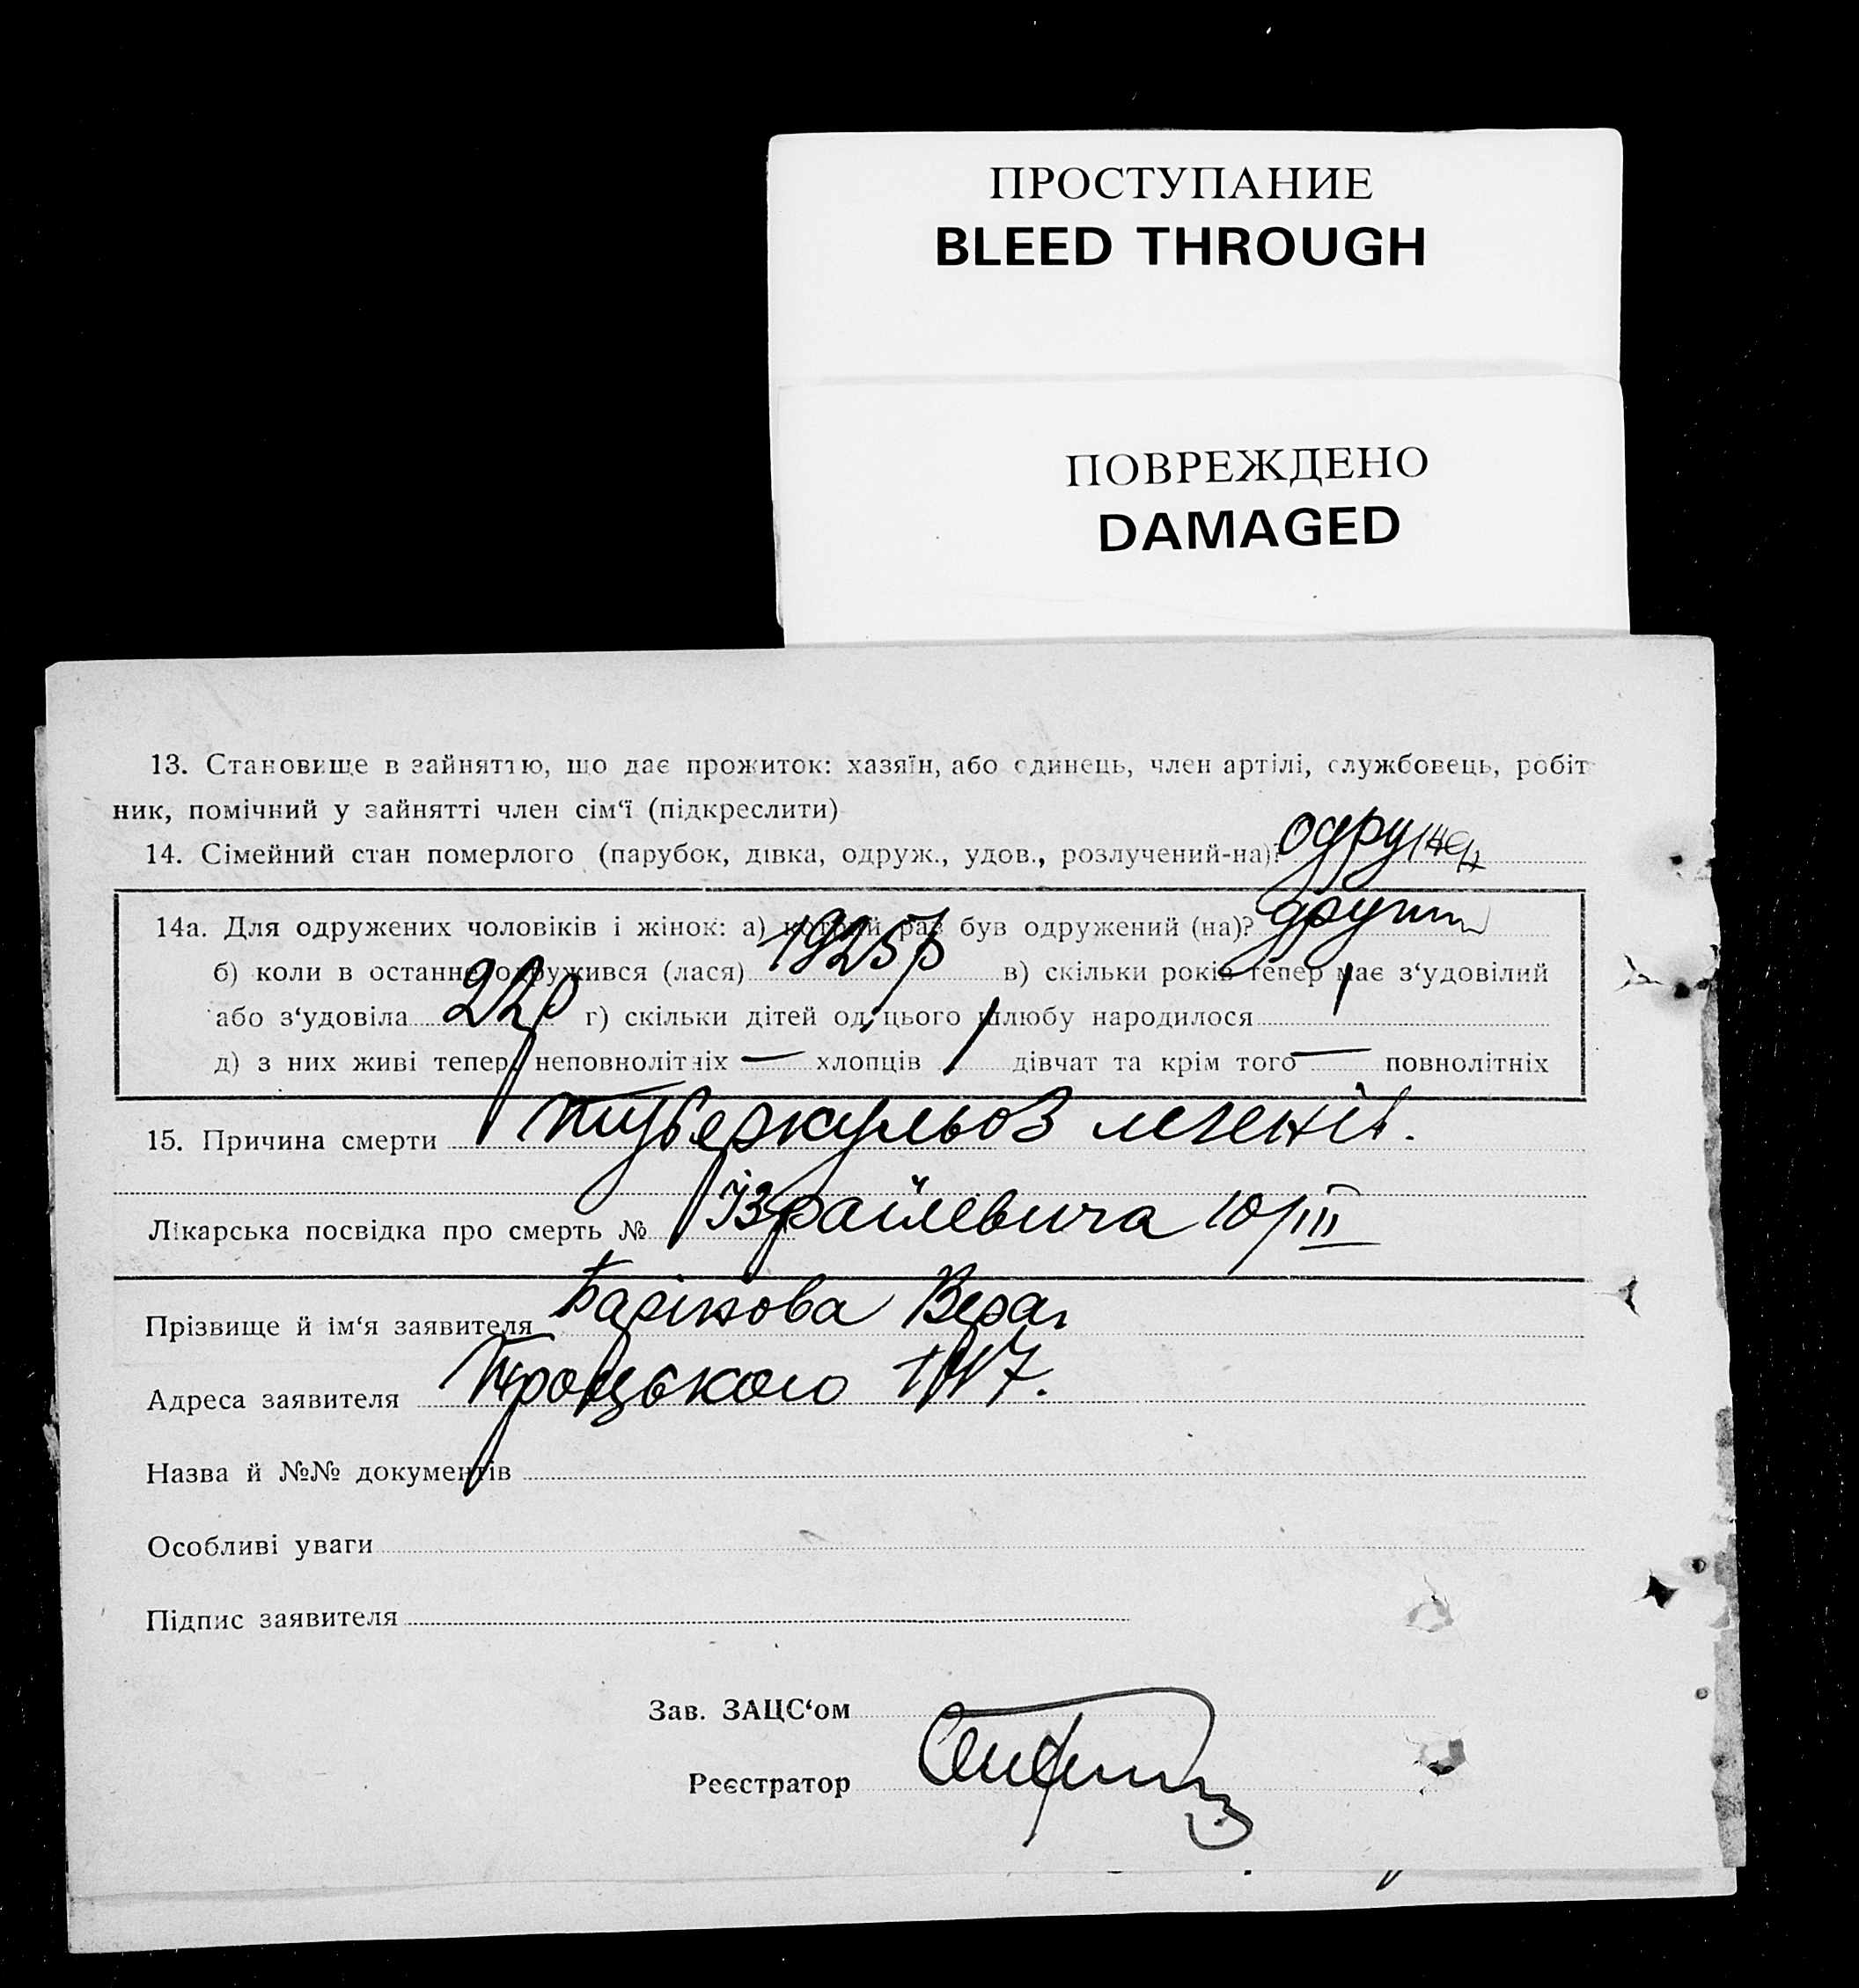 ПРОСТУПАНИЕ
BLEED THROUGH
ПОВРЕЖДЕНО
DAMAGED
13. Становище в зайняттю, що дає прожиток: хазяїн, або єдинець, член артілі, службовець, робіт-
ник, помічний у зайнятті член сім‘ї (підкреслити)
14. Сімейний стан померлого (парубок, дівка, одруж., удов., розлучений-на)? одружен
14а. Для одружених чоловіків і жінок: а) котрий раз був одружений (на)? другий
б) коли в останнє одружився (лася) 1925 р в) скільки років тепер має з‘удовілий
або з‘удовіла 22 р г) скільки дітей од цього шлюбу народилося 1
д) з них живі тепер неповнолітніх — хлопців 1 дівчат та крім того — повнолітніх
15. Причина смерти туберкульоз легенів.
Лікарська посвідка про смерть № Ізраїлевича 10/III
Прізвище й ім‘я заявителя Вера
Адреса заявителя Троцького
Назва й №№ документів
Особливі уваги
Підпис заявителя
Зав. ЗАЦС‘ом
Реєстратор